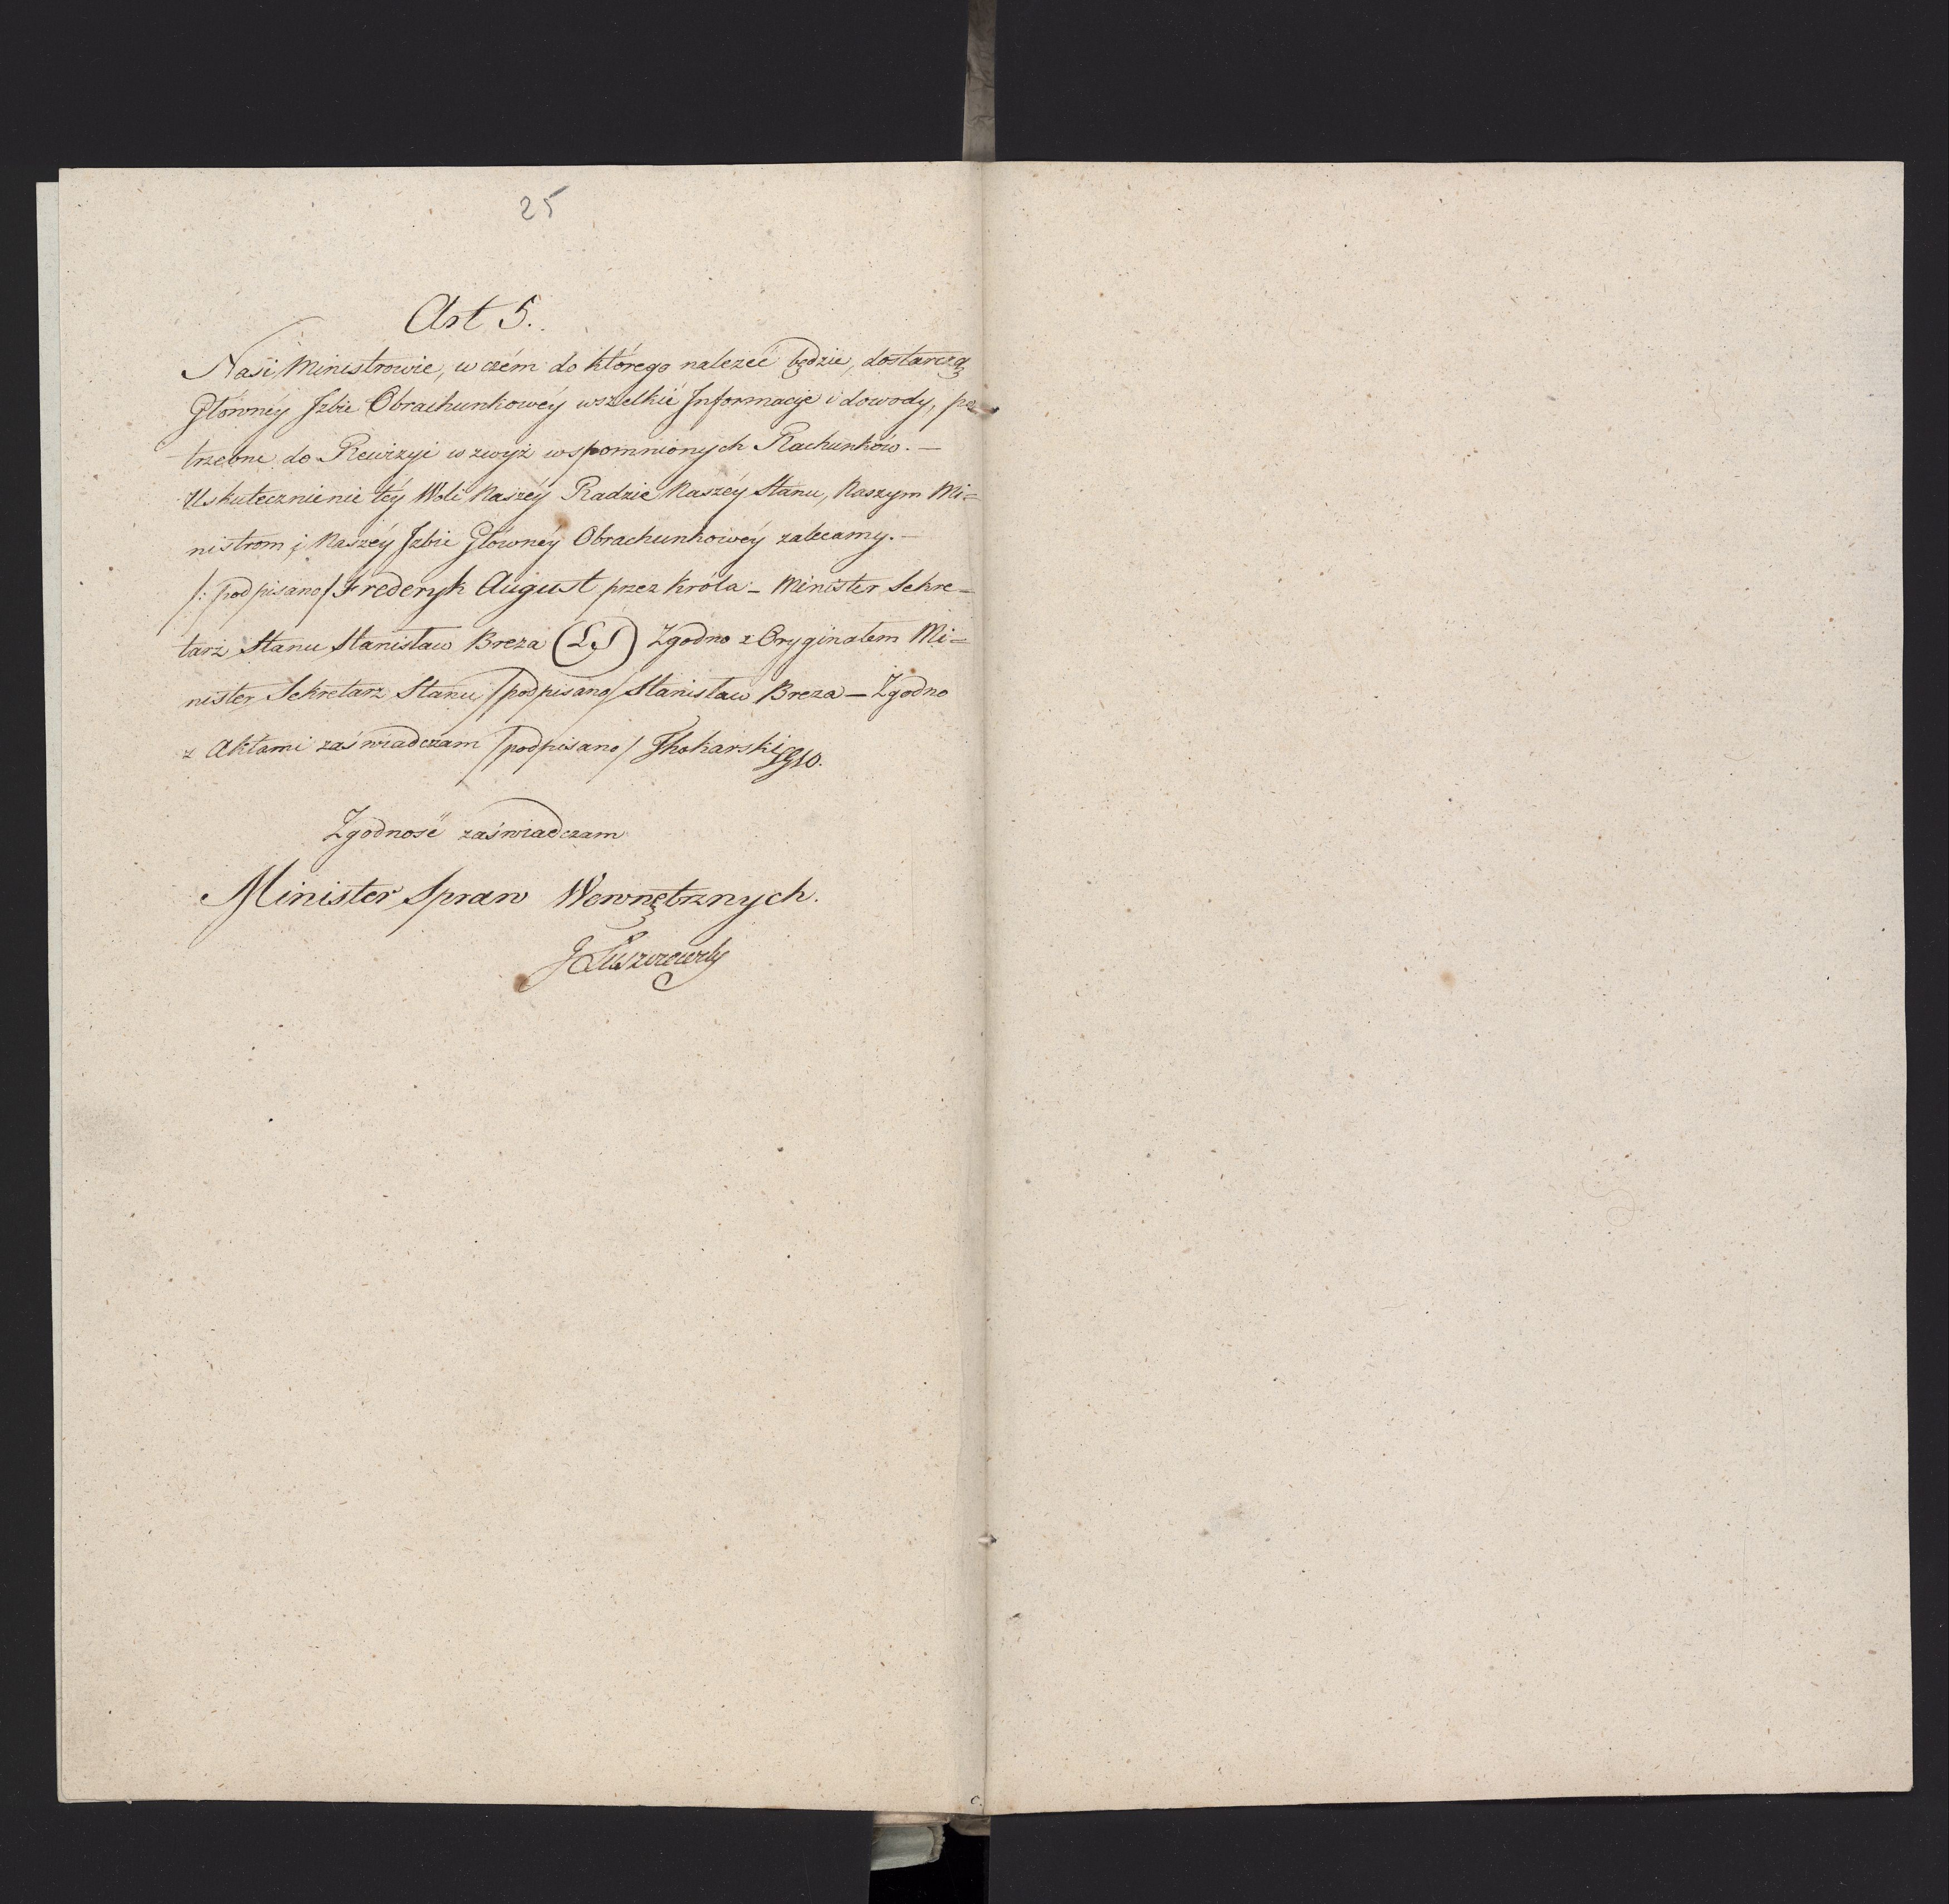 25
Art 5.
Nasi Ministrowie, w czém do którego nalezeć będzie, dostarczą
Głównéy Jzbie Obrachunkowéy wszelkie Jnformacje i dowody, po
trzebne do Rewizyi w zwyż wspomnionych Rachunków. —
Uskutecznienie téy Woli Naszéy Radzie Naszéy Stanu, Naszym Mi=
nistrom i Naszéy Jzbie Główney Obrachunkowéy zalecamy. —
/: podpisano/ Frederyk August przez króla – Minister Sekre=
tarz Stanu Stanisław Breza (LS) Zgodno z Oryginałem Mi=
nister Sekretarz Stanu /podpisano/ Stanisław Breza — Zgodno
z Aktami zaświadczam /podpisano/ Thokarski
Zgodność zaświadczam
Minister Spraw Wewnętrznych.